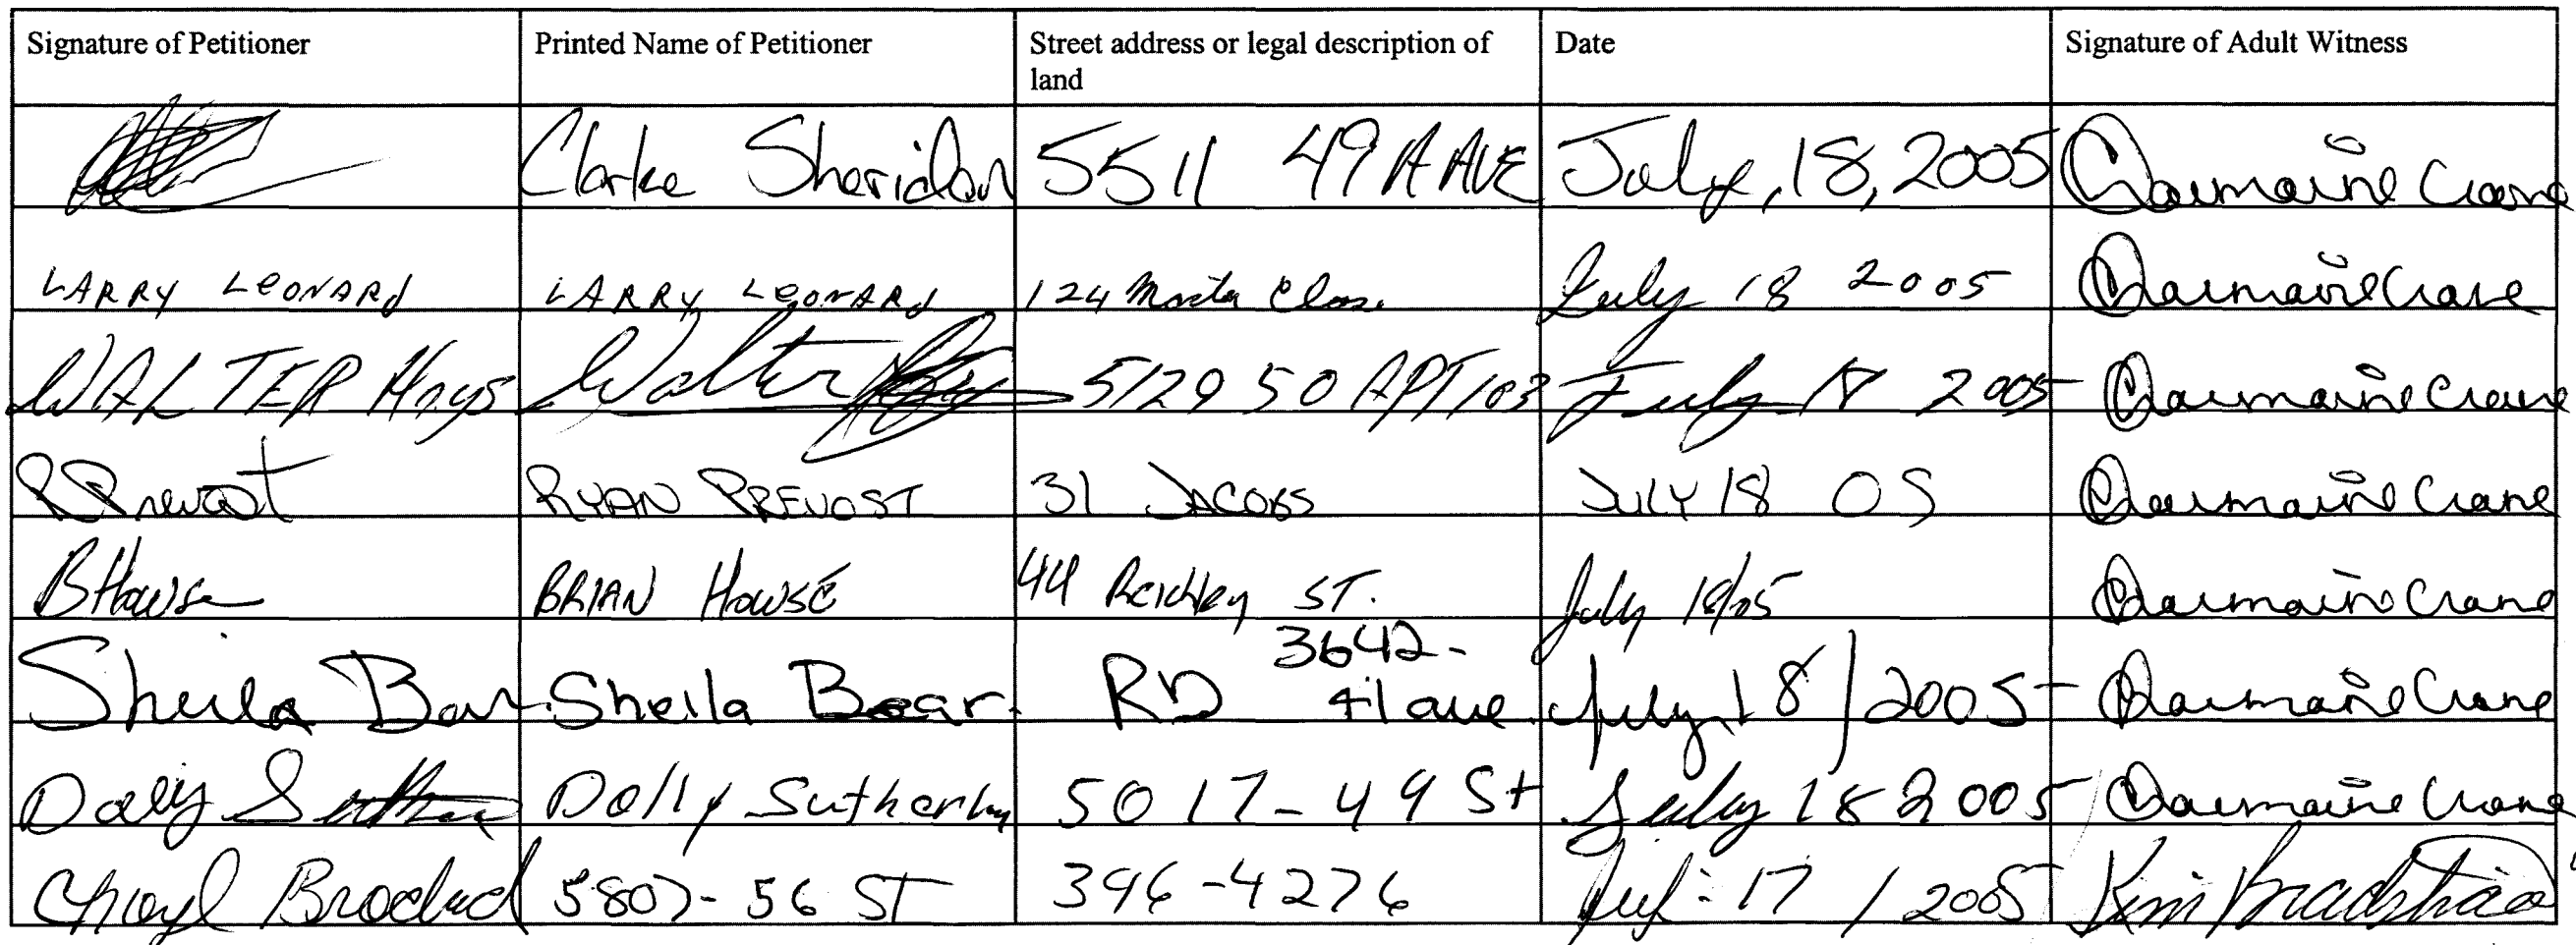 Signature of Petitioner Printed Name of Petitioner Street address or legal description of land Date Signature of Adult Witness
Clarke Sheridan 5511 49 A AVE July, 18, 2005 Charmaine Crane
LARRY LEONARd LARRY LEONARd 124 Close July 18 2005 Charmaine Crane
WALTER Hays Walter 5129 50 APT 103 July 18 2005 Charmaine Crane
R Prevost RYAN PREVOST 31 JACOBS JULY 18 05 Charmaine Crane
B Howse BRIAN HOWSE 44 ST. July 18/05 Charmaine Crane
Sheila Bear Sheila Bear. RD 3642- 41 ave. July 18/2005 Charmaine Crane
Dolly Dolly Sutherland 5017-49 St July 18 2005 Charmaine Crane
Cheryl 5807-56 ST 396-4276 17 / 2005 Kim